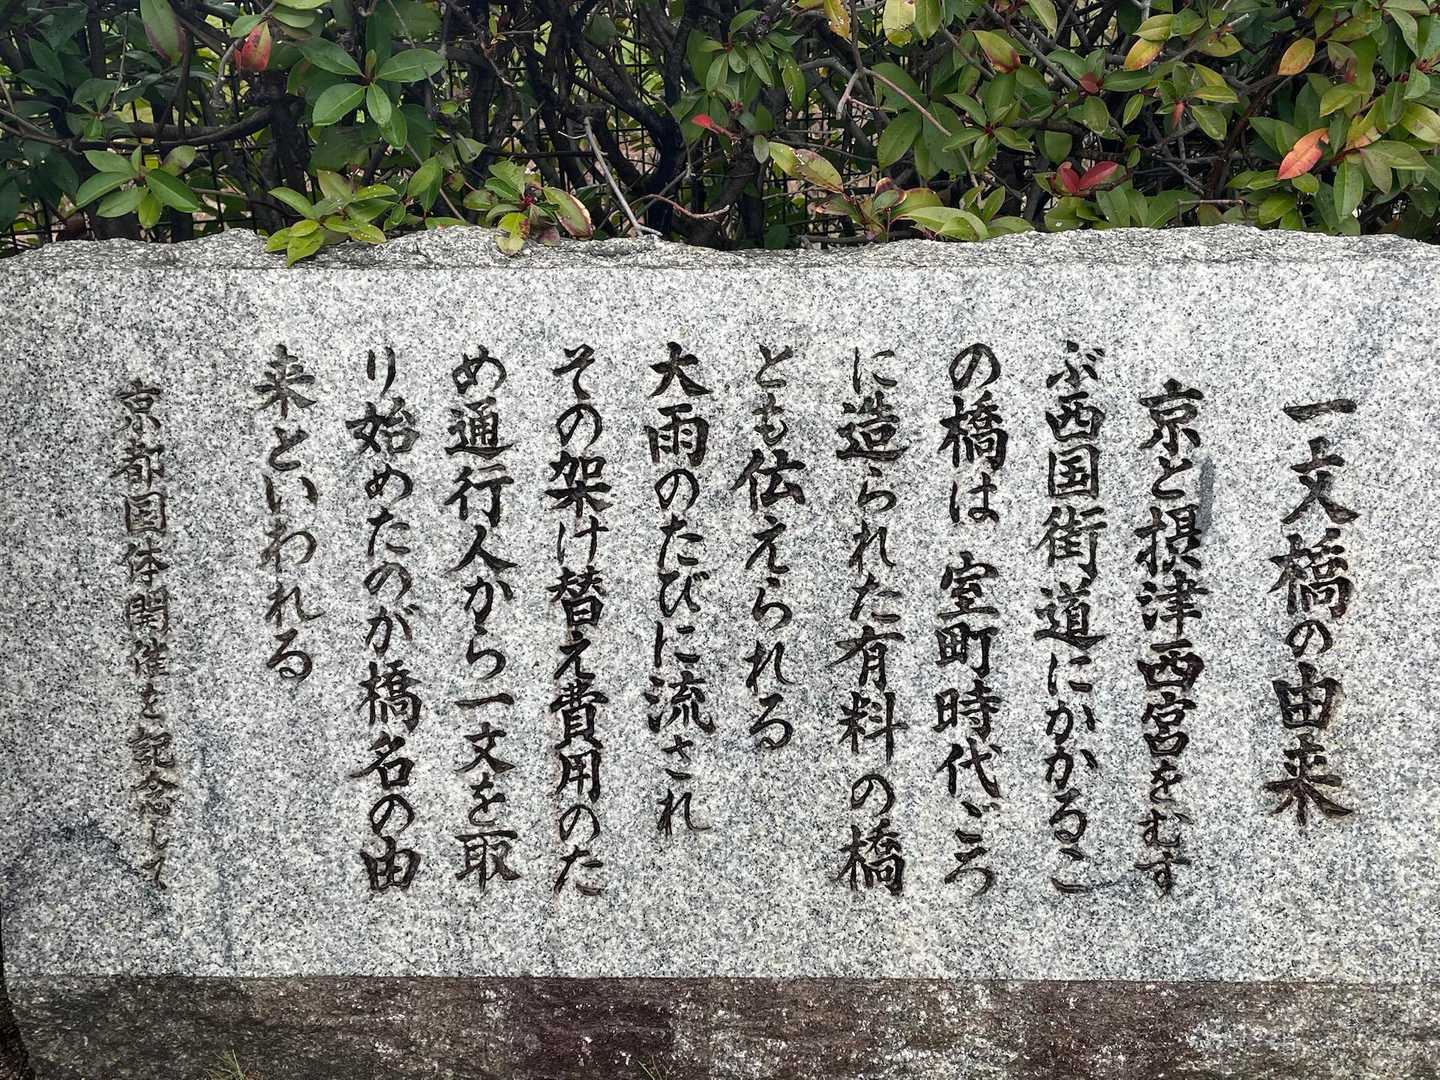 一文橋の由来
京と摂津西宮をむす
ぶ西国街道にかかるこ
の橋は 室町時代ごろ
に造られた有料の橋
とも伝えられる
大雨のたびに流され
その架け替え費用のた
め通行人から一文を取
り始めたのが橋名の由
来といわれる
京都国体開催を記念して